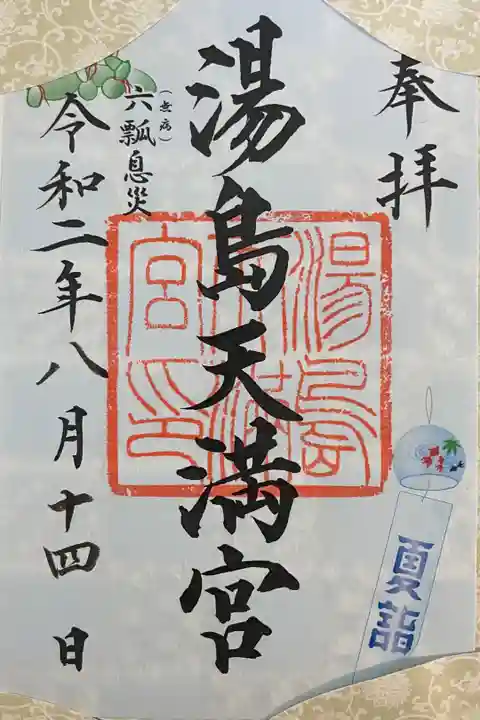 奉拝
湯島天満宮
湯島天満宮印
六瓢息災
(無病)
令和二年八月十四日
夏詣